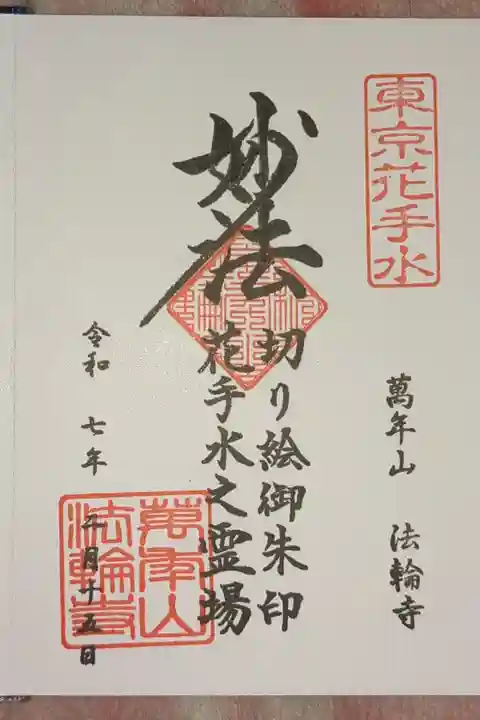 東京花手水
萬年山 法輪寺
妙法
切り絵御朱印
花手水之霊場
令和 七年 月十五日
萬年山
法輪寺